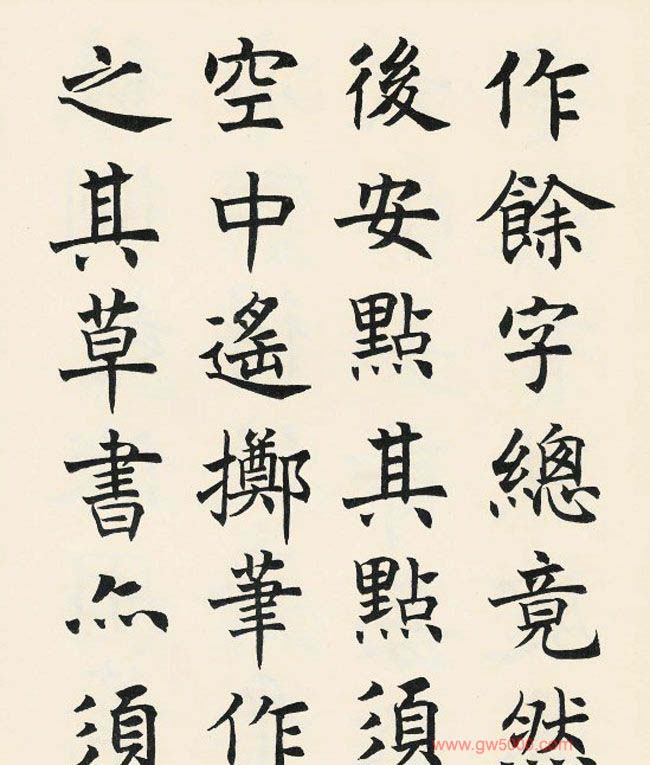 作餘字總竟然
後安點其點須
空中遙擲筆作
之其草書亦須
www.gw5000.com